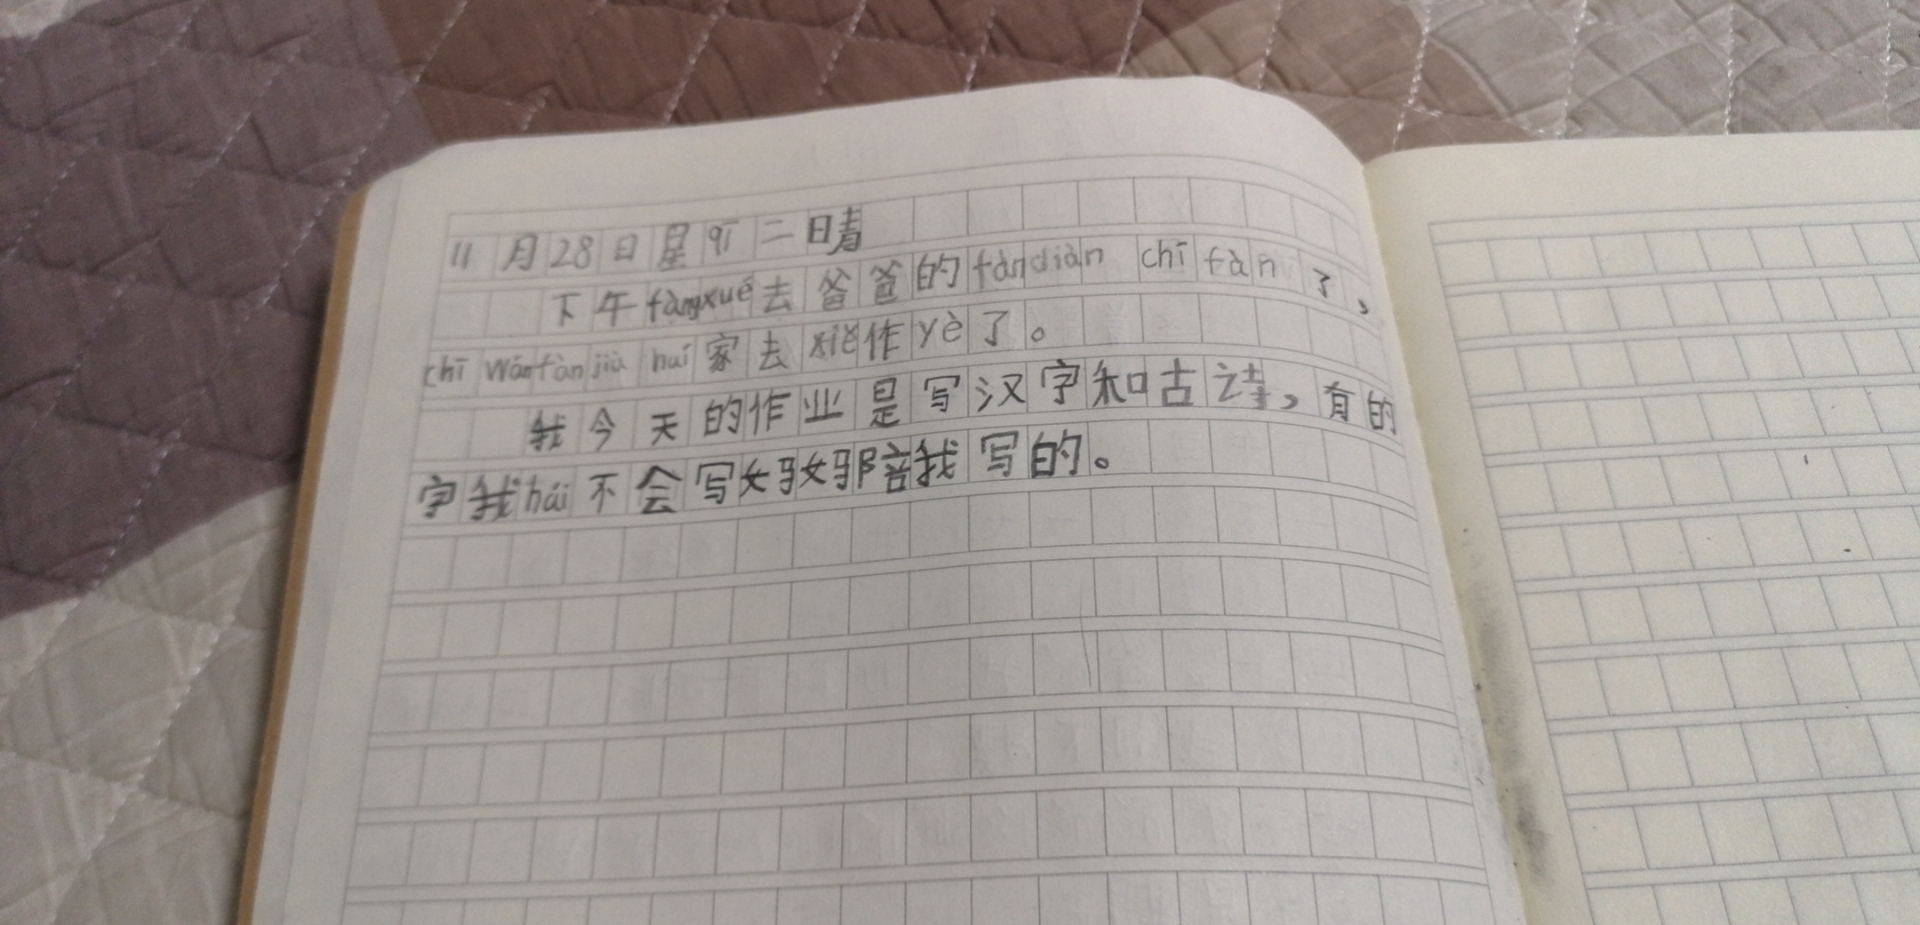 11月28日星qī二晴
下午fàngxué去爸爸的fàndiàn chī fàn了，
chī wánfàn jiù huí家去xiě作yè了。
我今天的作业是写汉字和古诗，有的
字我hái不会写妈妈那陪我写的。